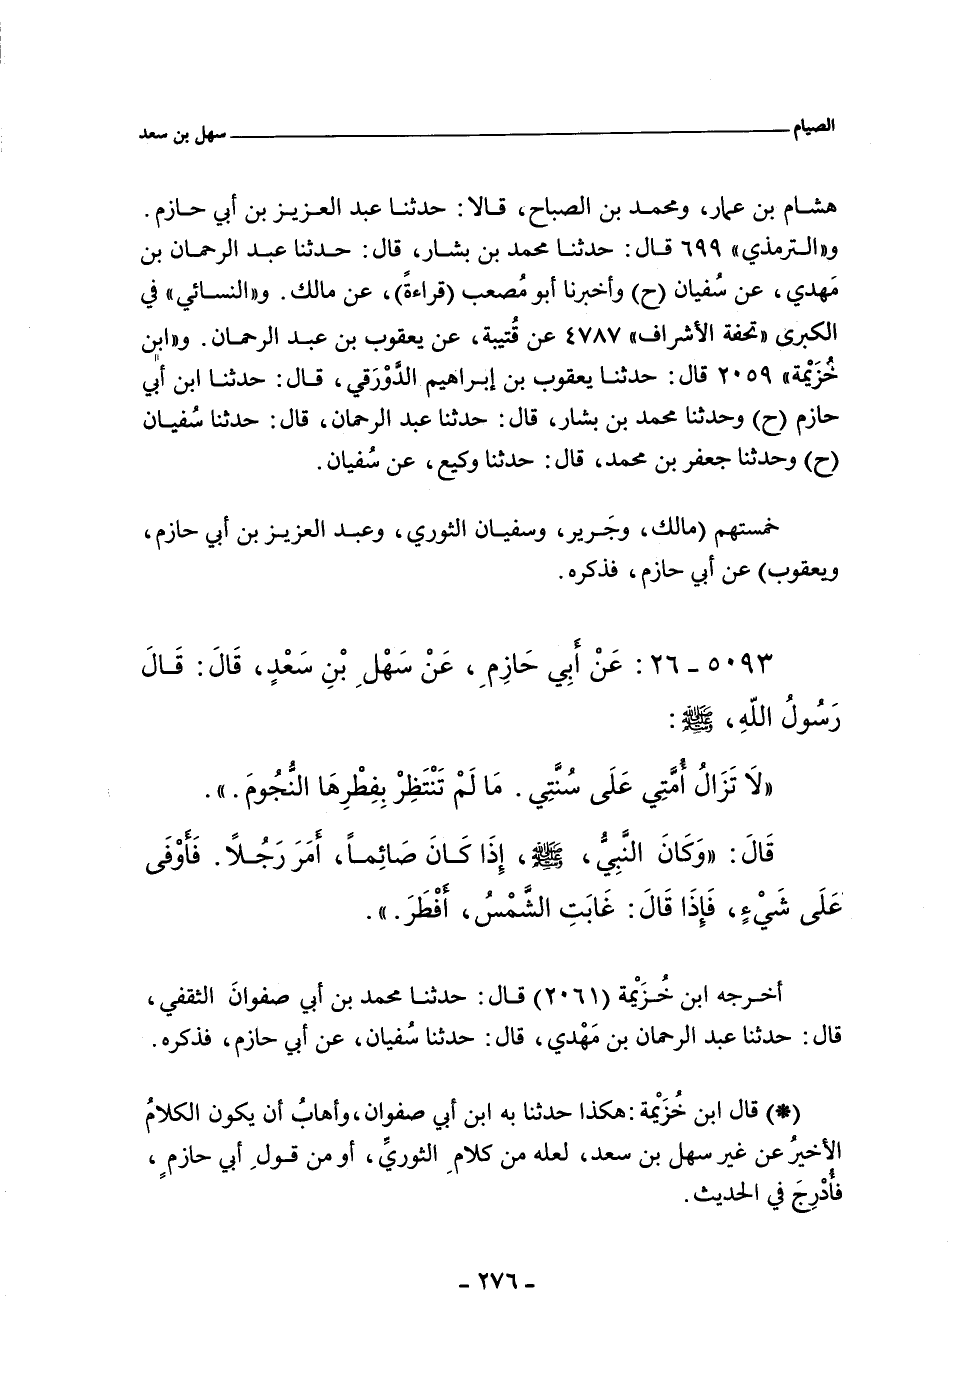 الصيام ــــــــ سهل بن سعد
هشام بن عمار، ومحمد بن الصباح، قالا: حدثنا عبد العزيز بن أبي حازم.
و«الترمذي» ٦٩٩ قال: حدثنا محمد بن بشار، قال: حدثنا عبد الرحمان بن
مَهدي، عن سُفيان (ح) وأخبرنا أبو مُصعب (قراءةً)، عن مالك. و«النسائي» في
الكبرى «تحفة الأشراف» ٤٧٨٧ عن قُتيبة، عن يعقوب بن عبد الرحمان. و«ابن
خُزَيْمة» ٢٠٥٩ قال: حدثنا يعقوب بن إبراهيم الدَّوْرَقي، قال: حدثنا ابن أبي
حازم (ح) وحدثنا محمد بن بشار، قال: حدثنا عبد الرحمان، قال: حدثنا سُفيان
(ح) وحدثنا جعفر بن محمد، قال: حدثنا وكيع، عن سُفيان.
خمستهم (مالك، وجَرير، وسفيان الثوري، وعبد العزيز بن أبي حازم،
ويعقوب) عن أبي حازم، فذكره.
٥٠٩٣ ـ ٢٦: عَنْ أَبِي حَازِمٍ، عَنْ سَهْلِ بْنِ سَعْدٍ، قَالَ: قَالَ
رَسُولُ اللّهِ، ﷺ:
«لَا تَزَالُ أُمَّتِي عَلَى سُنَّتِي. مَا لَمْ تَنْتَظِرْ بِفِطْرِهَا النُّجُومَ.».
قَالَ: «وَكَانَ النَّبِيُّ، ﷺ، إِذَا كَانَ صَائِماً، أَمَرَ رَجُلاً. فَأَوْفَى
عَلَى شَيْءٍ، فَإِذَا قَالَ: غَابَتِ الشَّمْسُ، أَفْطَرَ.».
أخرجه ابن خُزَيْمة (٢٠٦١) قال: حدثنا محمد بن أبي صفوانَ الثقفي،
قال: حدثنا عبد الرحمان بن مَهْدي، قال: حدثنا سُفيان، عن أبي حازم، فذكره.
(*) قال ابن خُزَيْمة: هكذا حدثنا به ابن أبي صفوان، وأهابُ أن يكون الكلامُ
الأخيرُ عن غير سهل بن سعد، لعله من كلامِ الثوريِّ، أو من قولِ أبي حازمٍ،
فأُدْرِجَ في الحديث.
- ٢٧٦ -